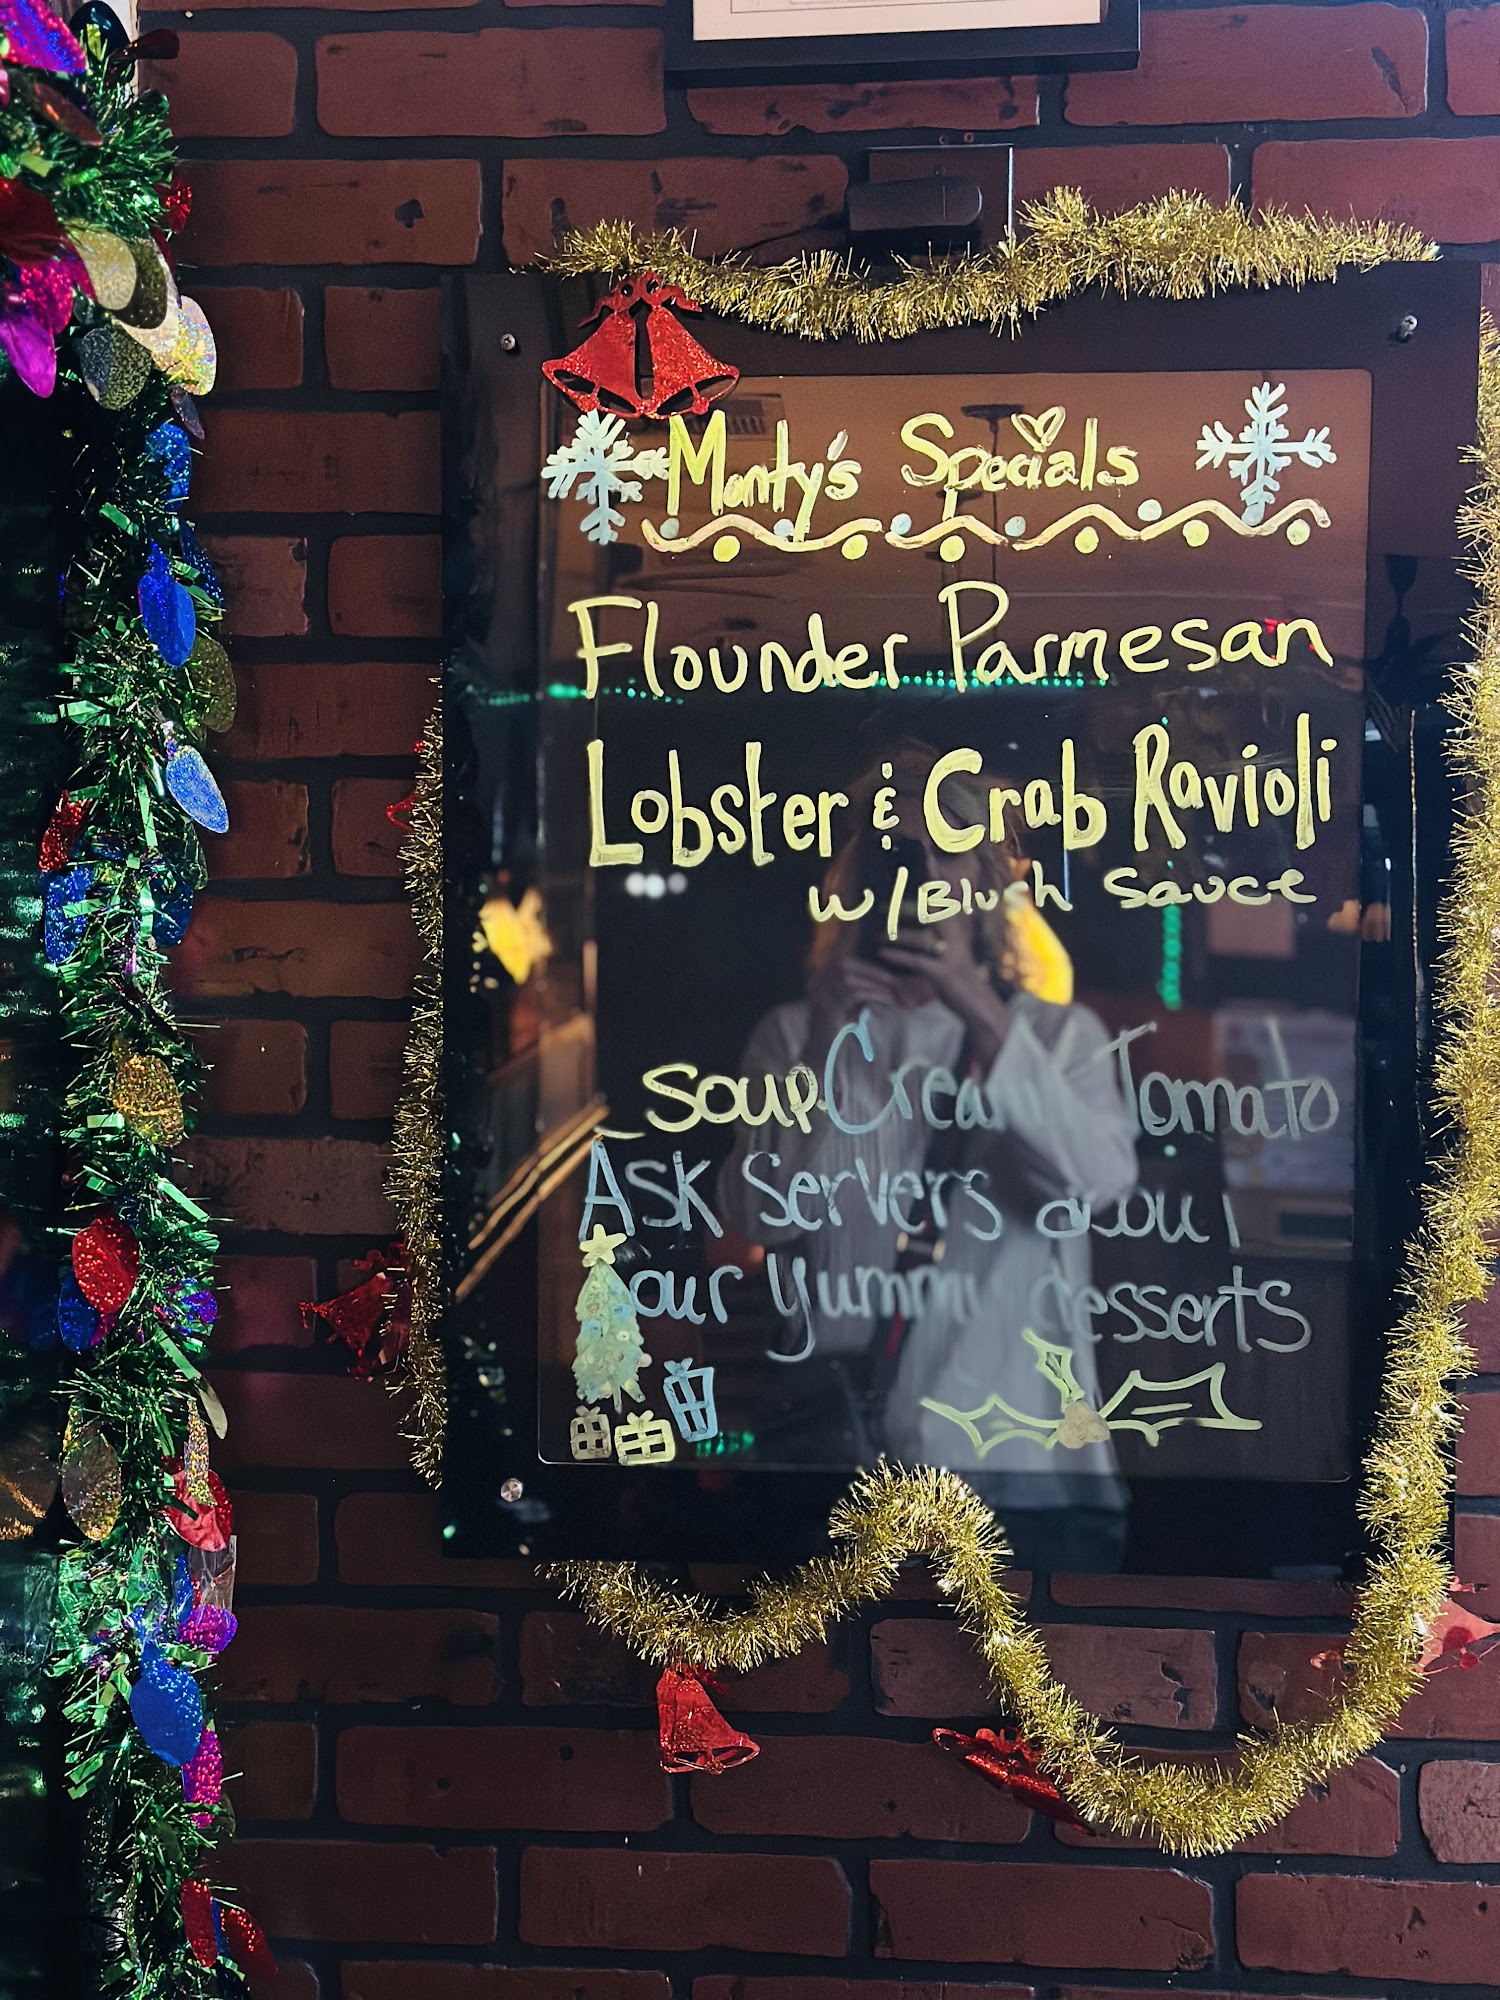 Monty's Specials
Flounder Parmesan
Lobster & Crab Ravioli
w/Blush Sauce
Soup Cream Tomato
Ask Servers about
our yummy desserts